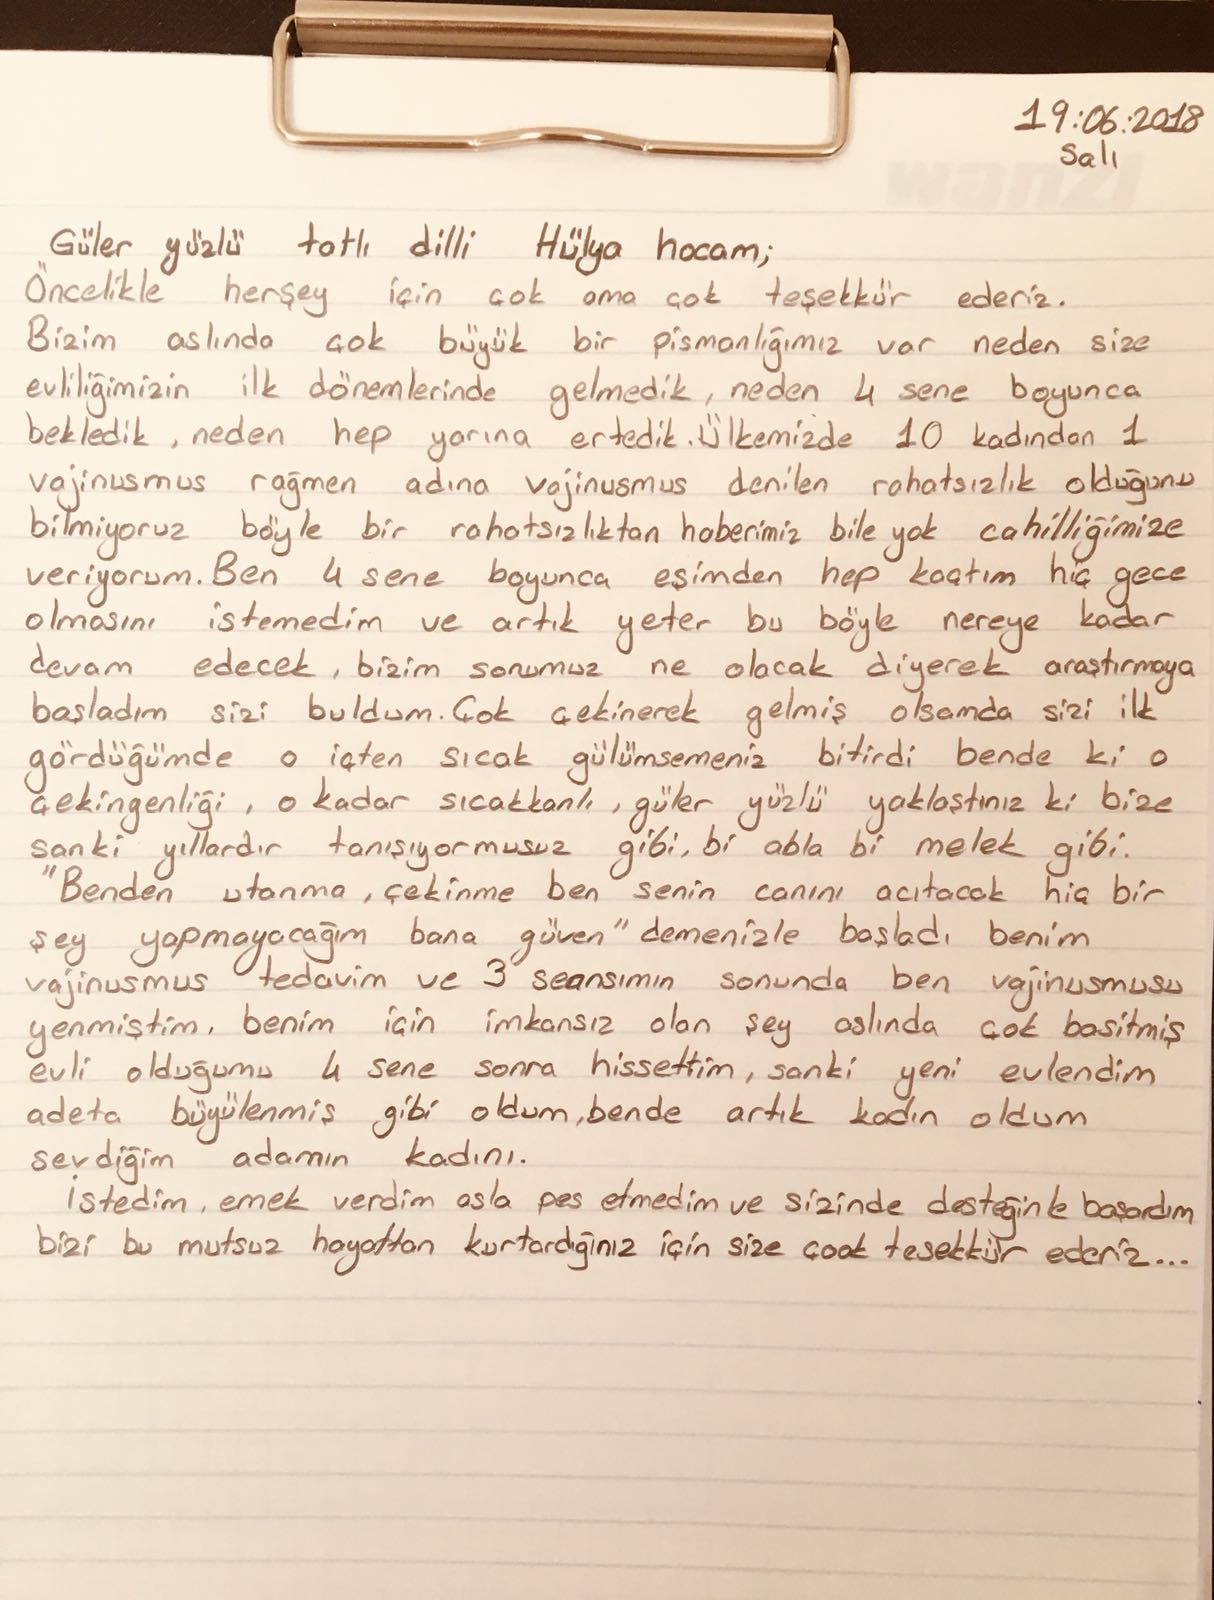 19.06.2018
Salı
Güler yüzlü tatlı dilli Hülya hocam;
Öncelikle herşey için çok ama çok teşekkür ederiz.
Bizim aslında çok büyük bir pismanlığımız var neden size
evliliğimizin ilk dönemlerinde gelmedik, neden 4 sene boyunca
bekledik, neden hep yarına ertedik. Ülkemizde 10 kadından 1
vajinusmus rağmen adına vajinusmus denilen rahatsızlık olduğunu
bilmiyoruz böyle bir rahatsızlıktan haberimiz bile yok cahilliğimize
veriyorum. Ben 4 sene boyunca eşimden hep kaçtım hiç gece
olmasını istemedim ve artık yeter bu böyle nereye kadar
devam edecek, bizim sonumuz ne olacak diyerek araştırmaya
başladım sizi buldum. Çok çekinerek gelmiş olsamda sizi ilk
gördüğümde o içten sıcak gülümsemeniz bitirdi bende ki o
çekingenliği, o kadar sıcakkanlı, güler yüzlü yaklaştınız ki bize
sanki yıllardır tanışıyormusuz gibi, bi abla bi melek gibi.
"Benden utanma, çekinme ben senin canını acıtacak hiç bir
şey yapmayacağım bana güven" demenizle başladı benim
vajinusmus tedavim ve 3 seansımın sonunda ben vajinusmusu
yenmiştim, benim için imkansız olan şey aslında çok basitmiş
evli olduğumu 4 sene sonra hissettim, sanki yeni evlendim
adeta büyülenmiş gibi oldum, bende artık kadın oldum
sevdiğim adamın kadını.
İstedim, emek verdim asla pes etmedim ve sizinde desteğinle başardım
bizi bu mutsuz hayattan kurtardığınız için size çook tesekkür ederiz...